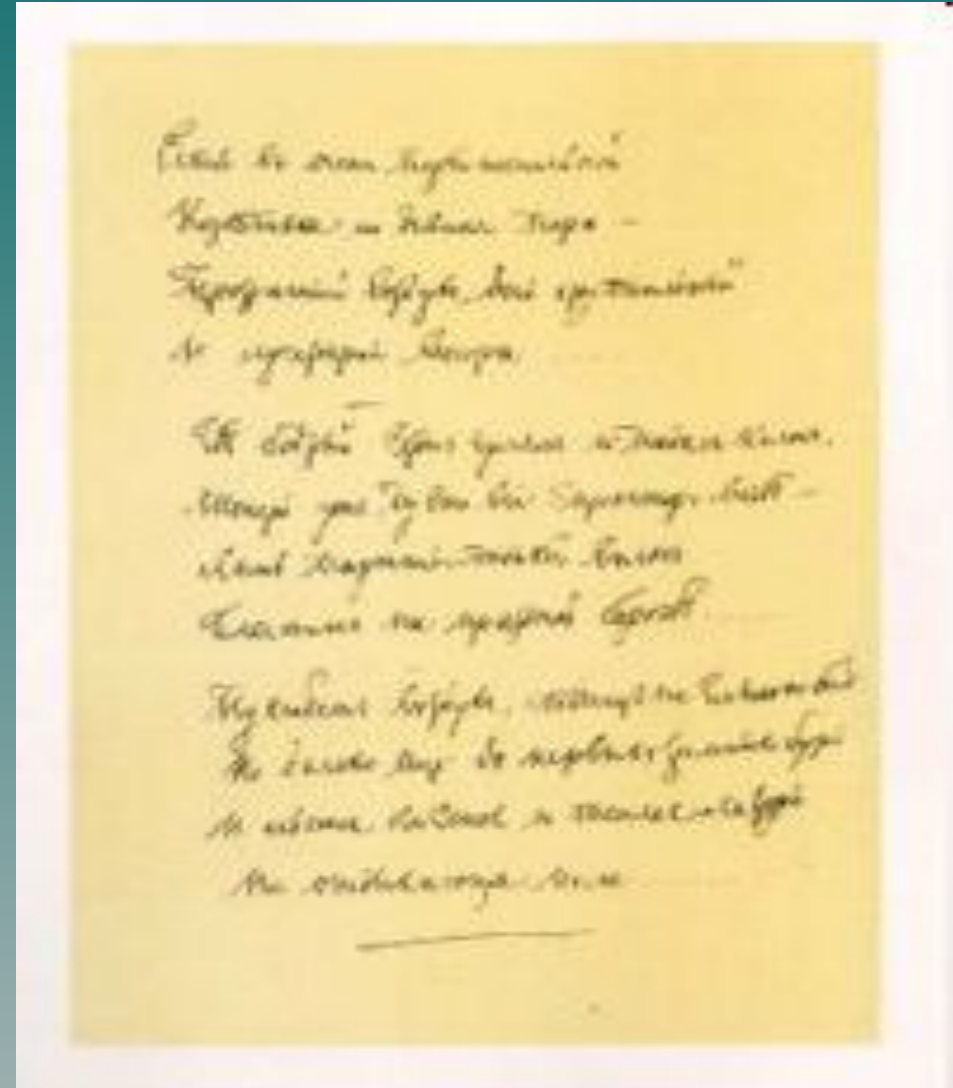 Есть в осени первоначальной
Короткая но дивная пора –
Прозрачный воздух, день хрустальный
И лучезарны вечера
Где бодрый Серп гулял и падал колос,
уж пусто все – везде –
Лишь паутины тонкий волос
Блестит на праздной борозде
воздух, птиц не слышно боле
Но далеко еще до первых зимних бурь
И льется и теплая лазурь
На отдыхающее поле